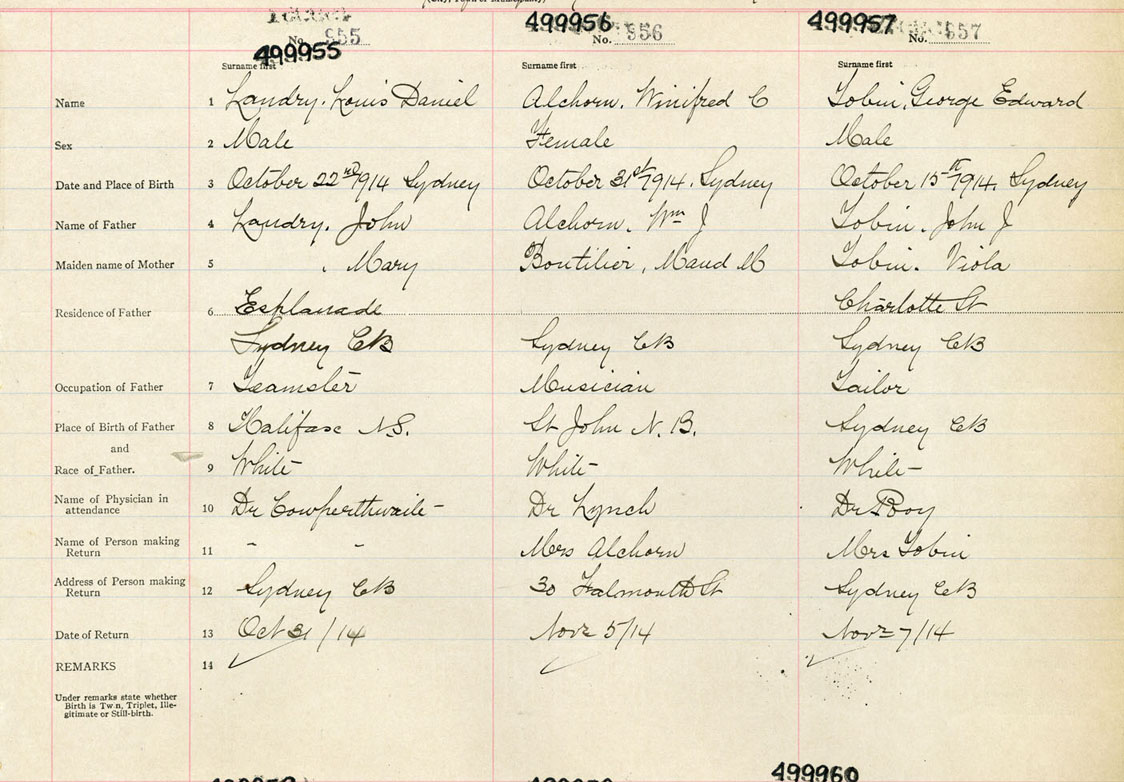 499955 499956 499957
No. 955 No. 956 No. 957
Surname first Surname first Surname first
Name 1 Landry. Louis Daniel Alchorn. Winifred C Tobin, George Edward
Sex 2 Male Female Male
Date and Place of Birth 3 October 22nd 1914 Sydney October 31st 1914. Sydney October 15th 1914. Sydney
Name of Father 4 Landry. John Alchorn. Wm J Tobin. John J
Maiden name of Mother 5 , Mary Boutilier, Maud M Tobin. Viola
Residence of Father 6 Esplanade Charlotte St
Sydney CB Sydney CB Sydney CB
Occupation of Father 7 Teamster Musician Tailor
Place of Birth of Father 8 Halifax N.S. St John N.B. Sydney CB
and
Race of Father. 9 White White White
Name of Physician in attendance 10 Dr Cowperthwaite Dr Lynch Dr Roy
Name of Person making Return 11 - - Mrs Alchorn Mrs Tobin
Address of Person making Return 12 Sydney CB 30 Falmouth St Sydney CB
Date of Return 13 Oct 31/14 Novr 5/14 Novr 7/14
REMARKS 14
Under remarks state whether
Birth is Twin, Triplet, Ille-
gitimate or Still-birth.
499960